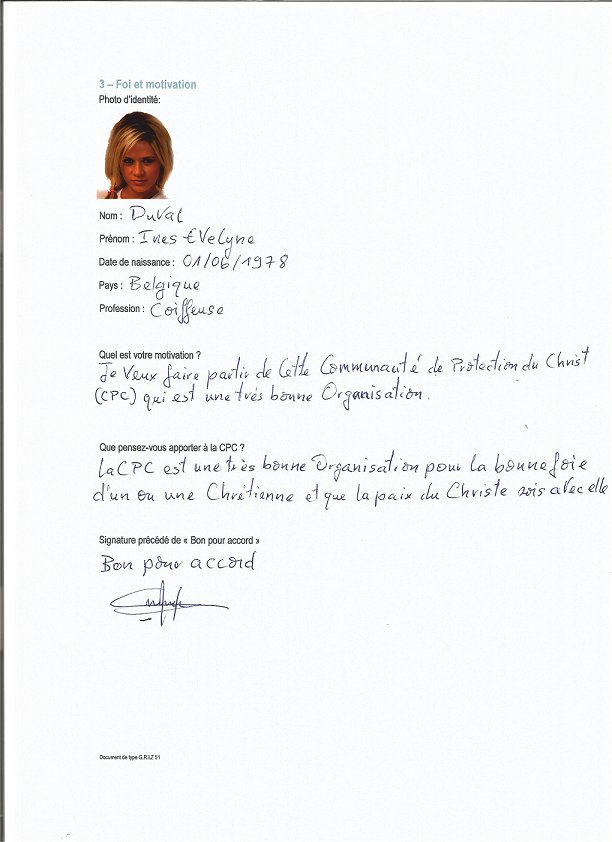 3 – Foi et motivation
Photo d'identité:
Nom : Duval
Prénom : Ines Evelyne
Date de naissance : 01/06/1978
Pays : Belgique
Profession : Coiffeuse
Quel est votre motivation ?
Je Veux faire partir de Cette Communauté de Protection du Christ
(CPC) qui est une trés bonne Organisation.
Que pensez-vous apporter à la CPC ?
La CPC est une très bonne Organisation pour la bonne foie
d'un ou une Chrétienne et que la paix du Christe sois avec elle
Signature précédé de « Bon pour accord »
Bon pour accord
Document de type G.R.I.Z 51